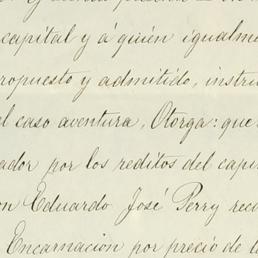 capital y á quién igualme
ropuesto y admitido, instru
el caso aventura, Otorga: que
ador por los reditos del capi
on Eduardo José Perry reco
Encarnación por precio de